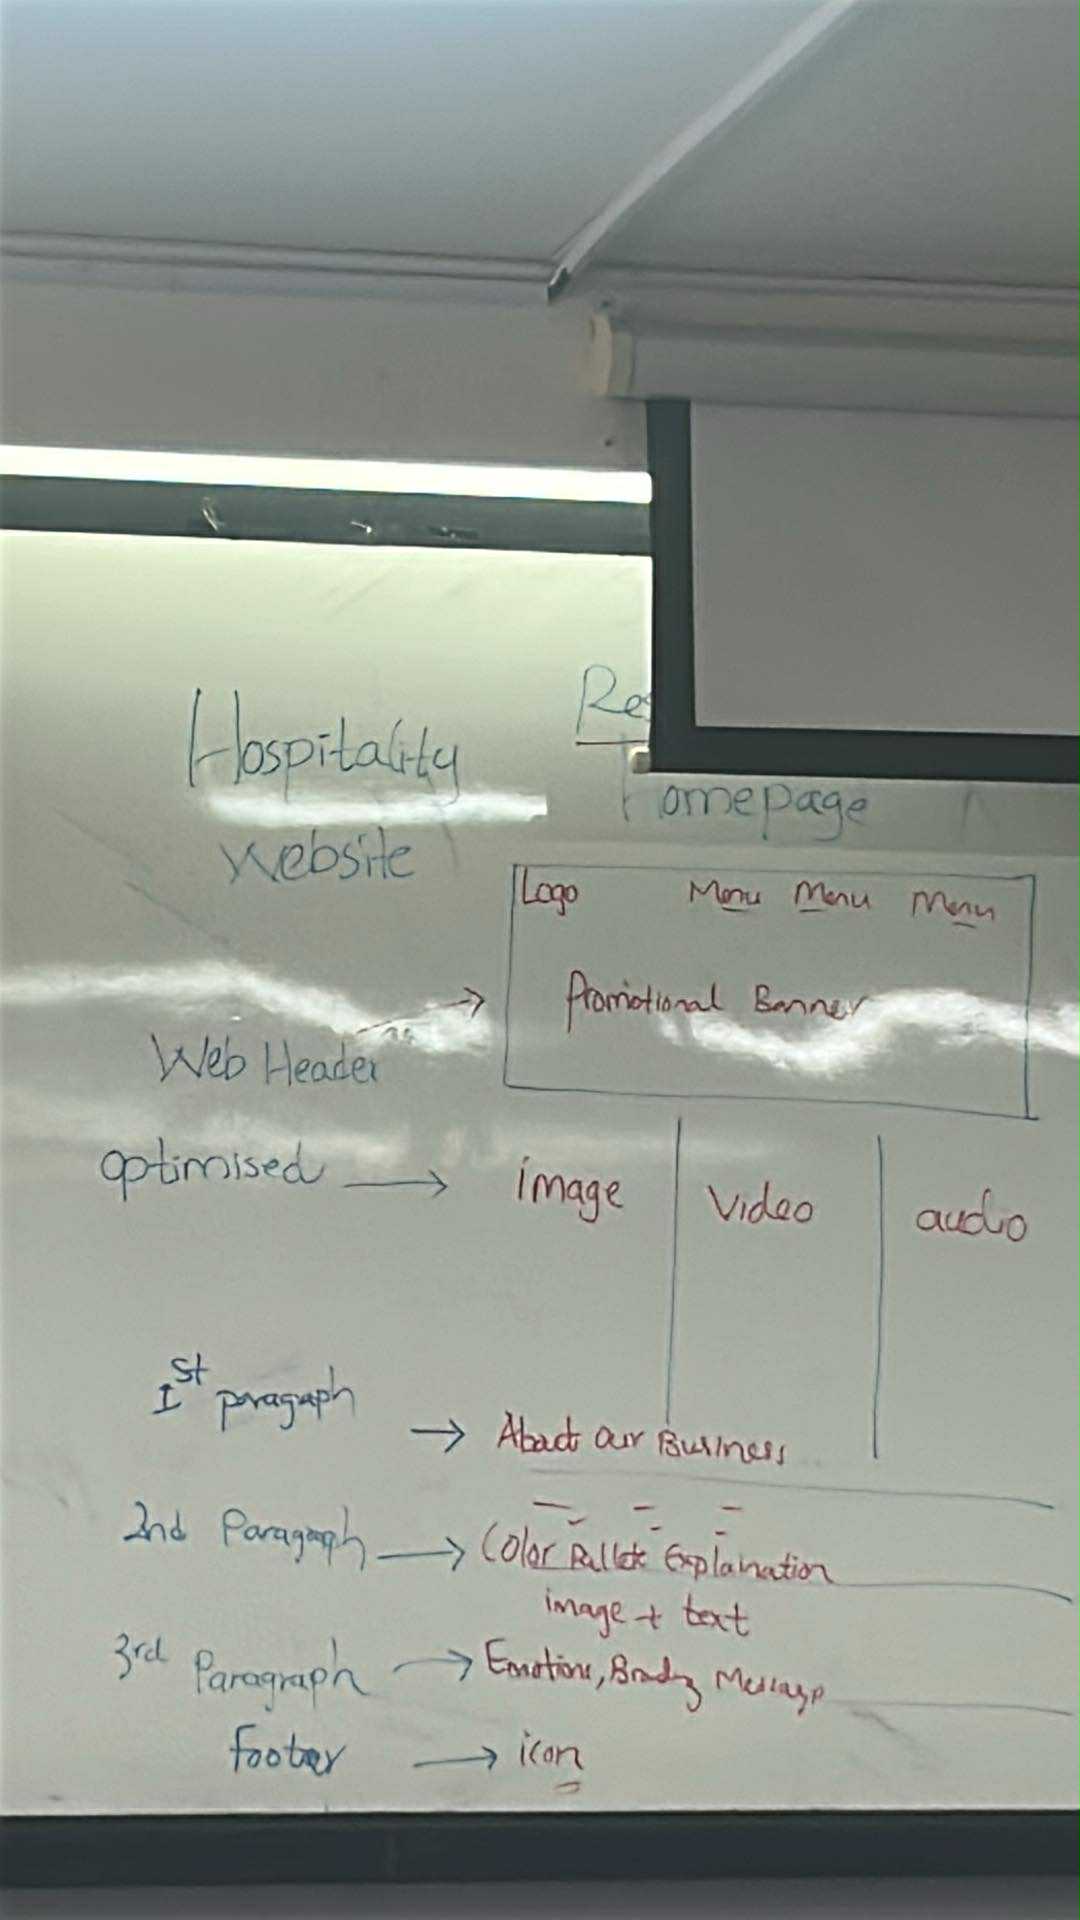 Hospitality
Website
Homepage
Logo Menu Menu Menu
Promotional Banner
Web Header
optimised → image video audio
1st paragraph → About our Business
2nd Paragraph → Color Pallete Explanation
image + text
3rd Paragraph → Emotions, Branding Message
footer → icon